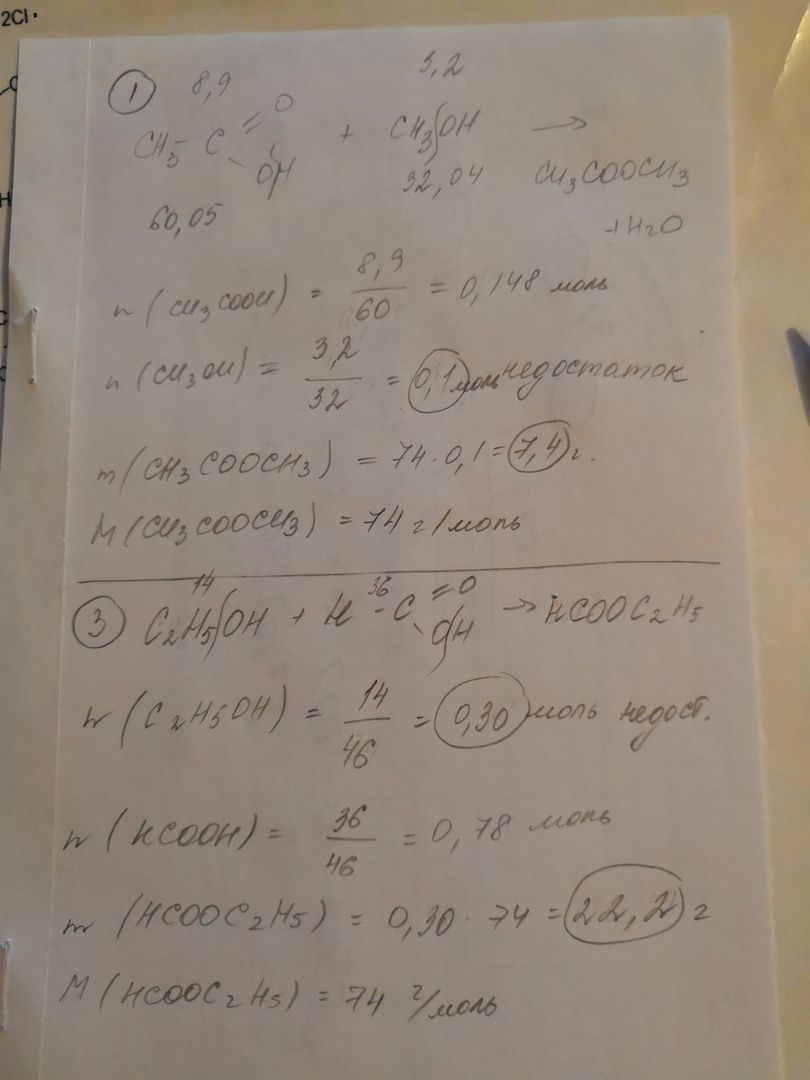 2Cl·
① 8,9 3,2
CH3 - C =O -OH + CH3OH →
60,05 32,04 CH3COOCH3
+ H2O
n (CH3COOH) = 8,9/60 = 0,148 моль
n (CH3OH) = 3,2/32 = 0,1 моль недостаток
m (CH3COOCH3) = 74 · 0,1 = 7,4 г.
M (CH3COOCH3) = 74 г/моль
14 36
③ C2H5OH + H - C =O -OH → HCOOC2H5
n (C2H5OH) = 14/46 = 0,30 моль недост.
n (HCOOH) = 36/46 = 0,78 моль
m (HCOOC2H5) = 0,30 · 74 = 22,2 г
M (HCOOC2H5) = 74 г/моль